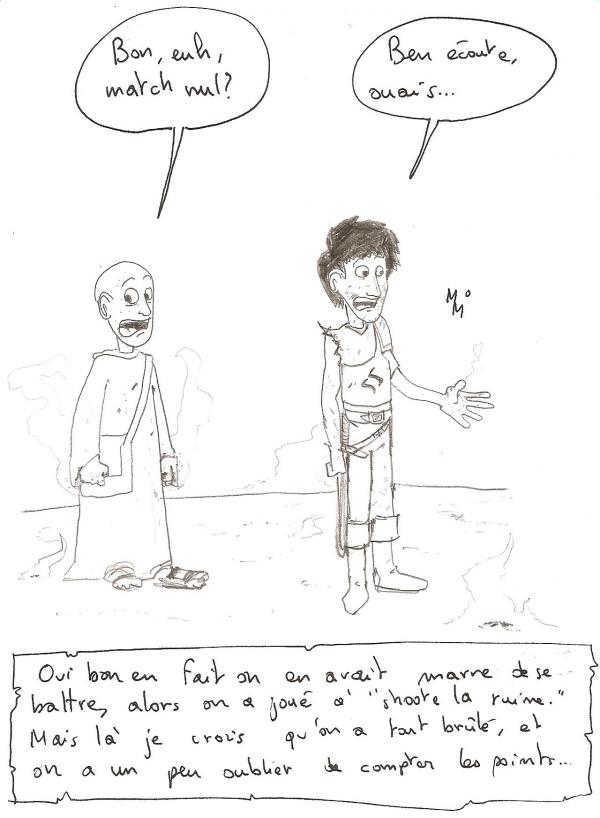 Bon, euh,
match nul?
Ben écoute,
ouais...
M°
M
Oui bon en fait on en avait marre de se
battre, alors on a joué à "shoote la ruine."
Mais là je crois qu'on a tout brûlé, et
on a un peu oublier de compter les points...